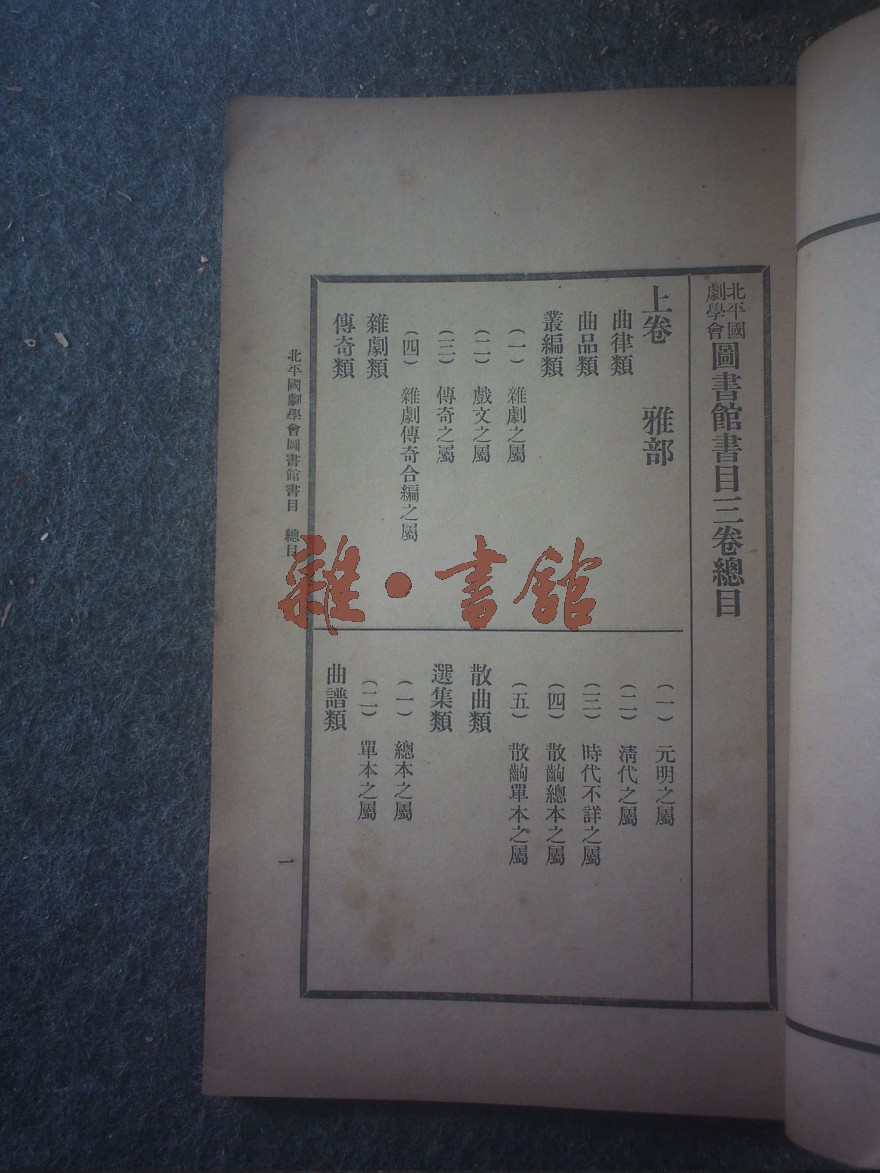 北平國劇學會圖書館書目三卷總目
上卷　雅部
曲律類
曲品類
叢編類
（一）　雜劇之屬
（二）　戲文之屬
（三）　傳奇之屬
（四）　雜劇傳奇合編之屬
雜劇類
傳奇類
（一）　元明之屬
（二）　淸代之屬
（三）　時代不詳之屬
（四）　散齣總本之屬
（五）　散齣單本之屬
散曲類
選集類
（一）　總本之屬
（二）　單本之屬
曲譜類
北平國劇學會圖書館書目　總目
一
雜·書館